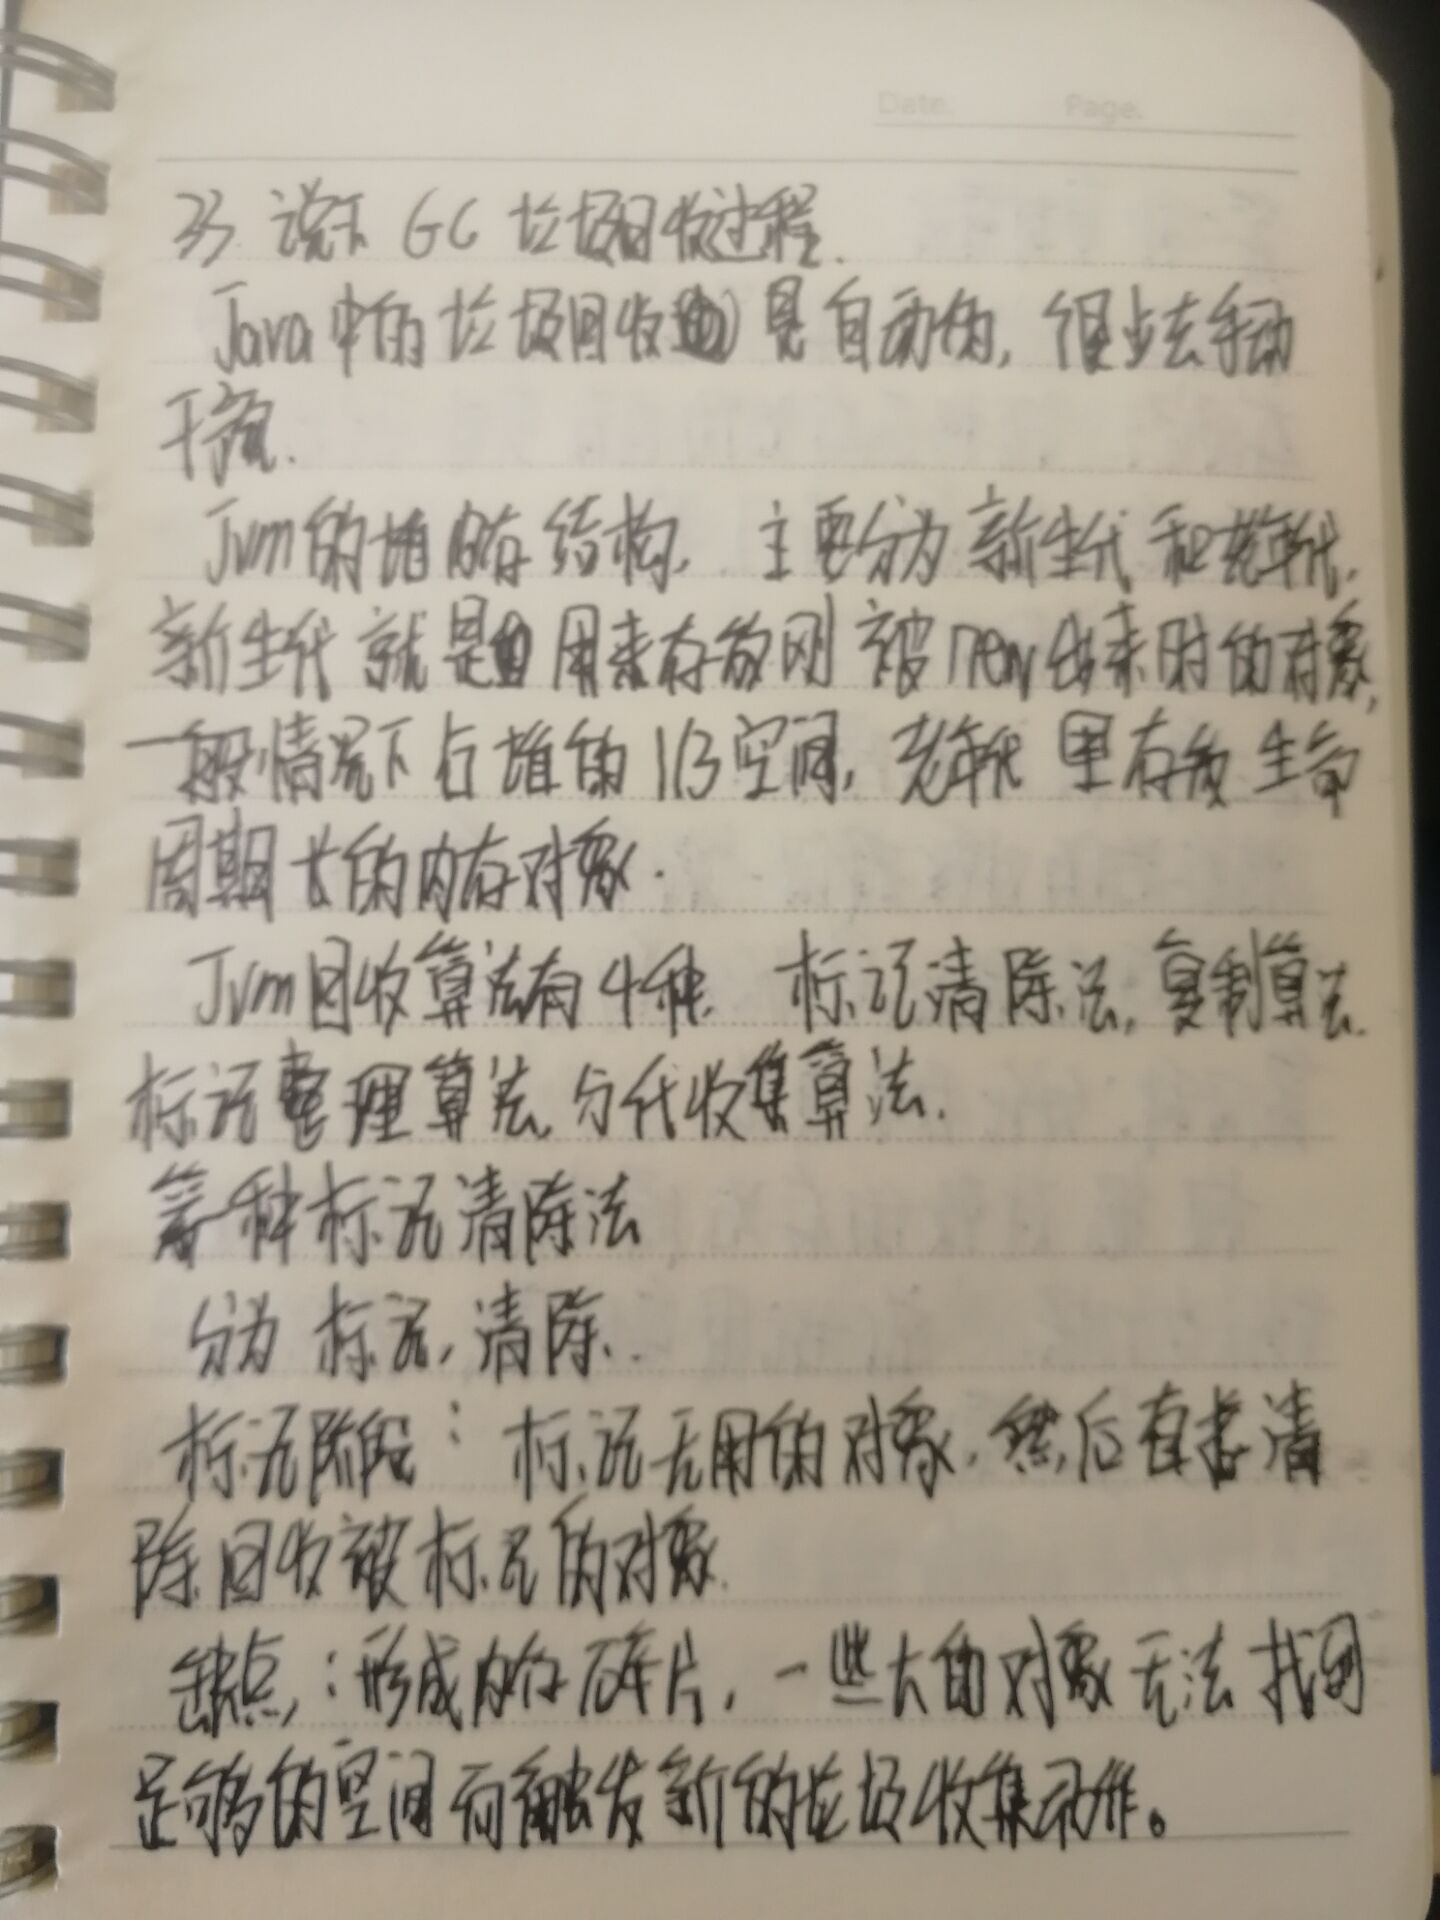 Date. Page.
33. 说下 GC 垃圾回收过程.
Java中的垃圾回收是自动的, 很少去手动
干预.
Jvm的堆内存结构, 主要分为 新生代 和老年代.
新生代 就是用来存放刚 被new出来时的对象,
一般情况下占堆的 1/3空间, 老年代 里存放 生命
周期长的内存对象.
Jvm回收算法有4种. 标记清除法, 复制算法.
标记整理算法, 分代收集算法.
第一种标记清除法
分为 标记, 清除.
标记阶段: 标记无用的对象, 然后直接清
除回收被标记的对象.
缺点,: 形成内存碎片, 一些大的对象无法找到
足够的空间而触发新的垃圾收集动作。